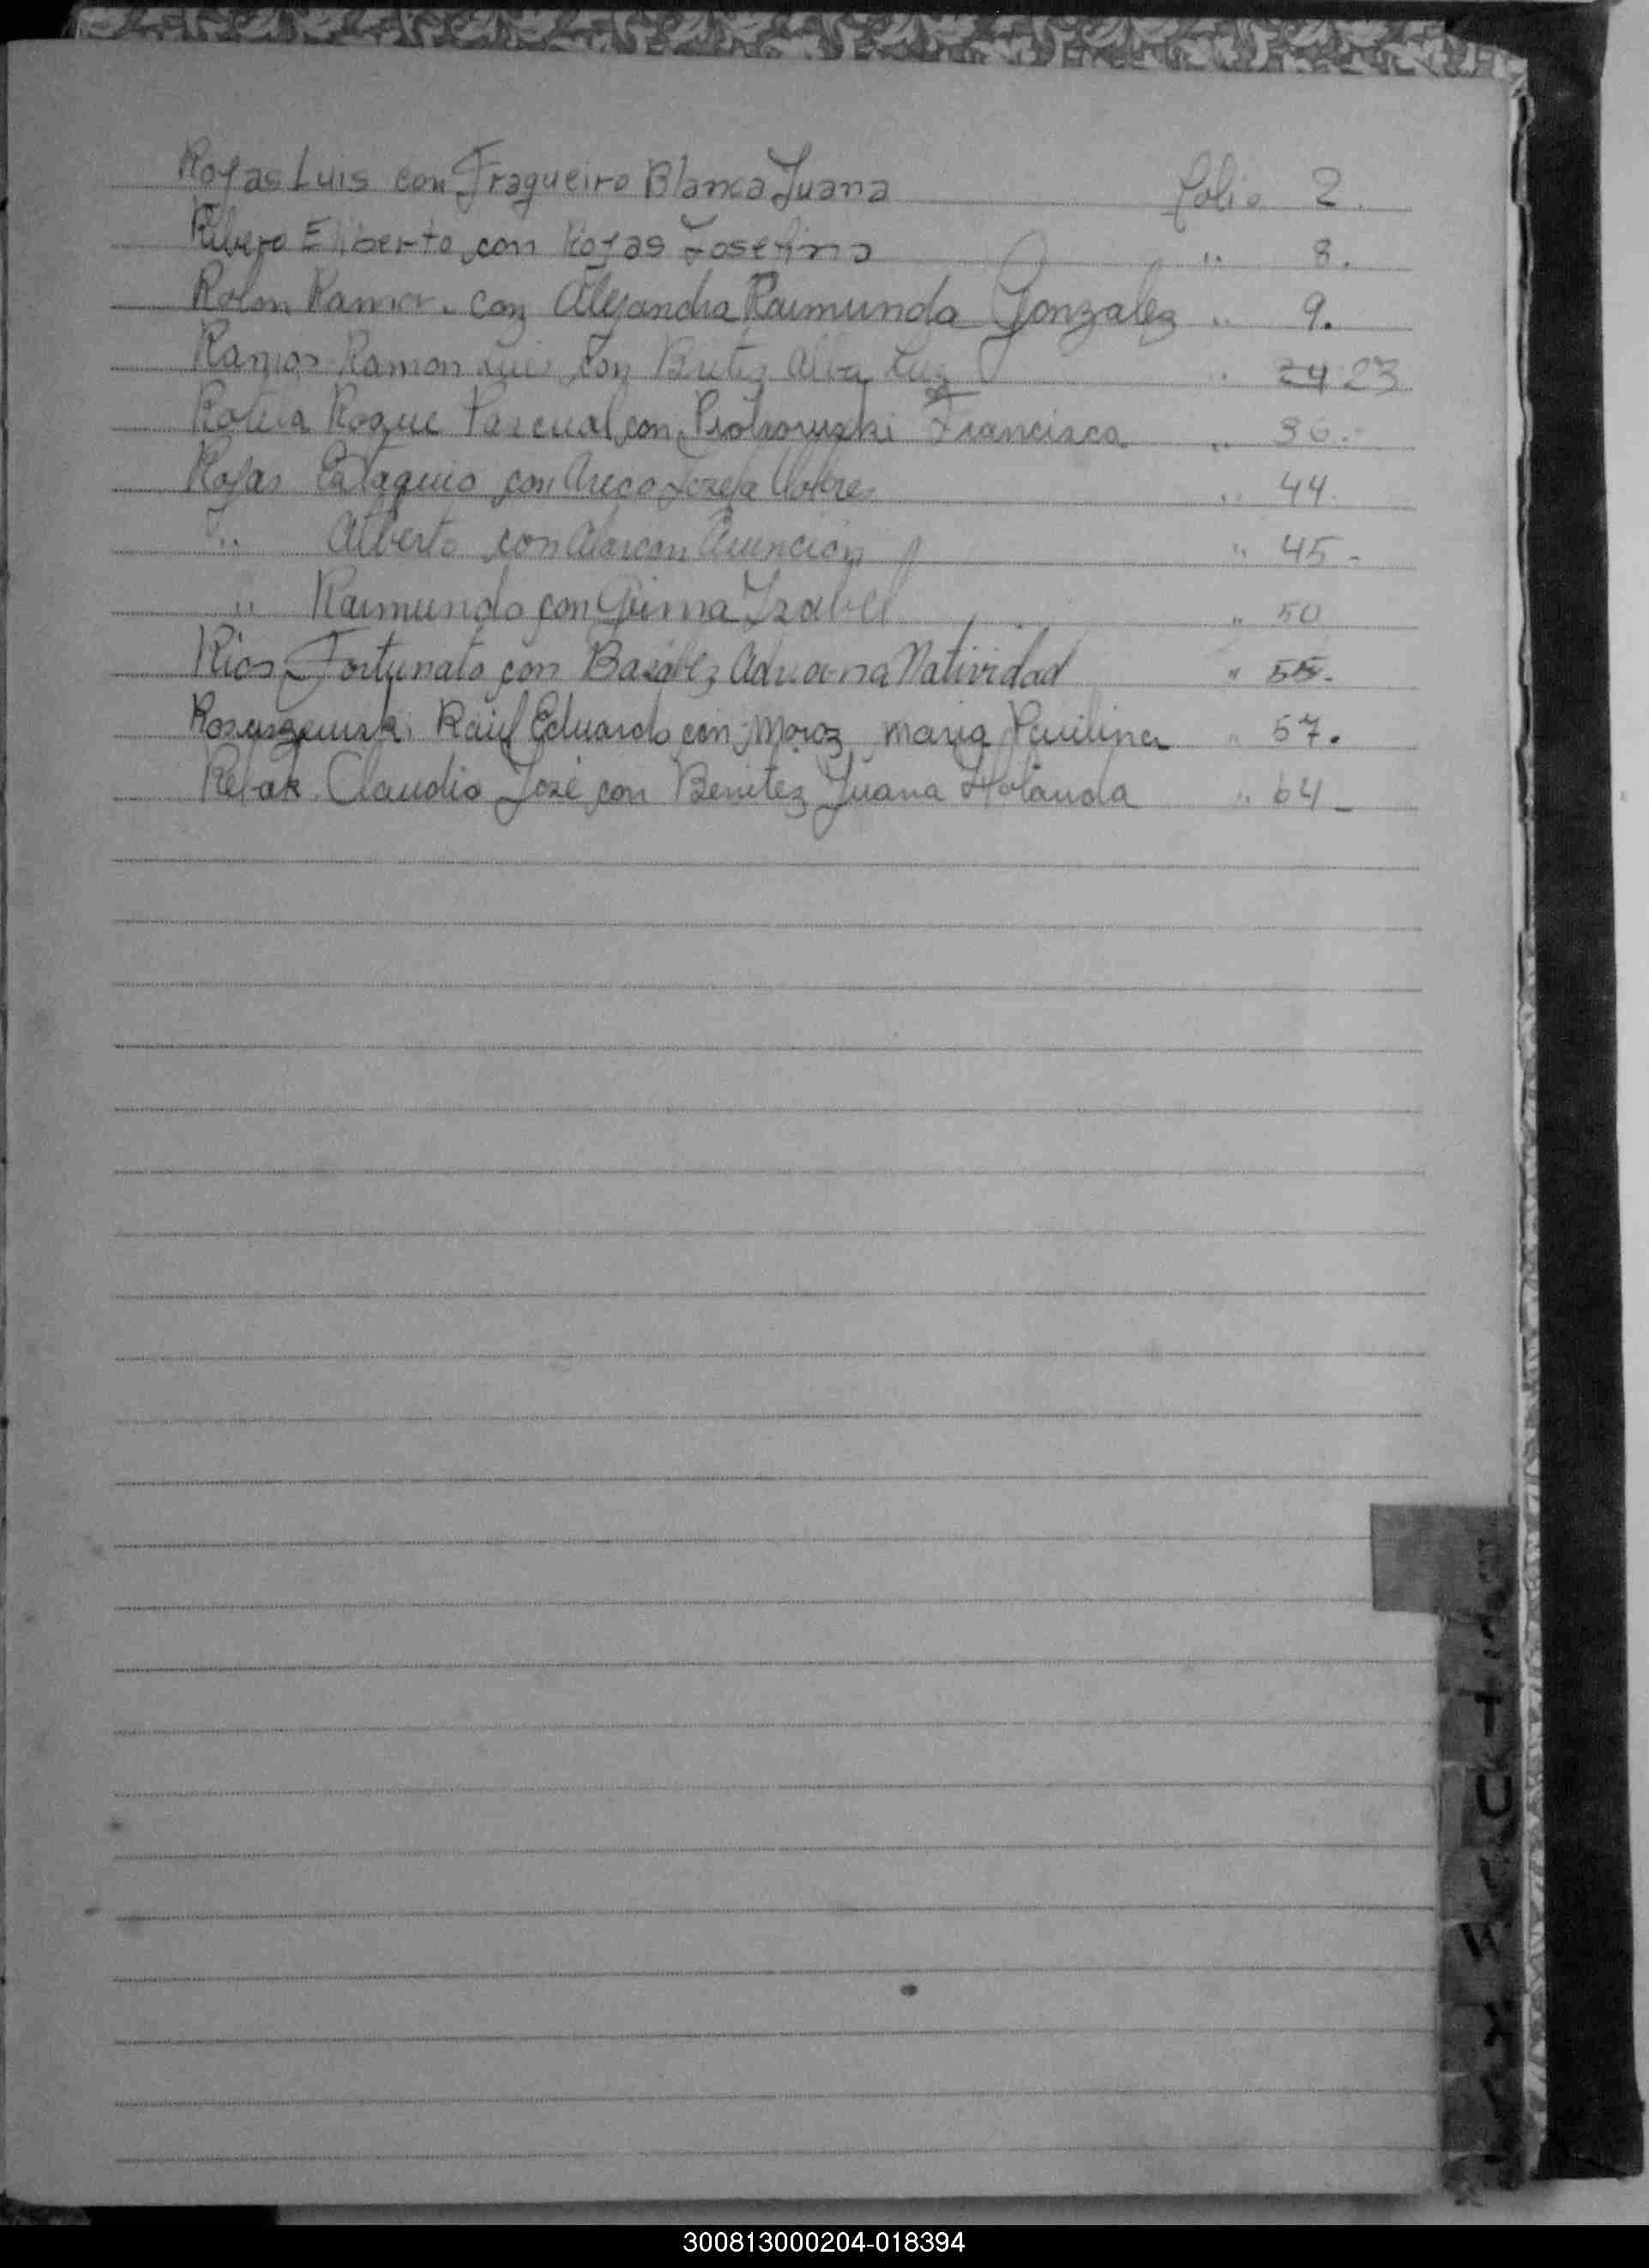 Rojas Luis con Fragueiro Blanca Juana folio 2.
Ribero Eliberto con Rojas Josefina " 8.
Rolon Ramon con Alejandra Raimunda Gonzalez " 9.
Ramos Ramon Luis con Britez Alba Luz " 24 23
Rotela Roque Pascual con Piotrowski Francisca " 36.
Rojas Estaquio con Areco Josefa " 44.
" Alberto con Alarcon Asuncion " 45-
" Raimundo con Izabel " 50
Rios Fortunato con Adriana Natividad " 55.
Raúl Eduardo con Moroz Maria Paulina " 57.
Rebak Claudio José con Benitez Juana Holanda " 64-
T
U
W
300813000204-018394